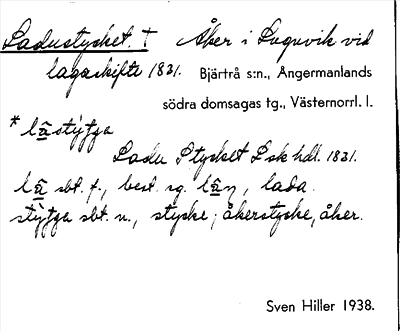 Ladustycket. † Åker i Lugnvik vid
lagaskifte 1831. Bjärtrå s:n., Ångermanlands
södra domsagas tg., Västernorrl. l.
* lāstýʃʃa
Ladu Stycket Lsk hdl. 1831.
lā sbt. f., best. sg. lān, lada.
stýʃʃa sbt. n., stycke; åkerstycke, åker.
Sven Hiller 1938.